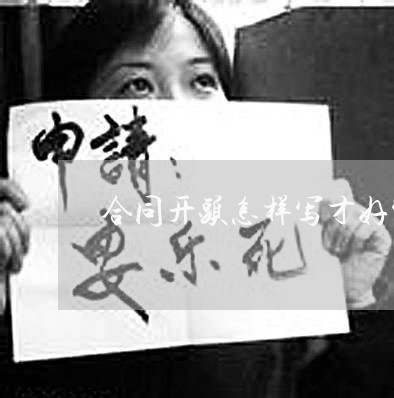 申請：
合同开頭怎样写才好
要乐死